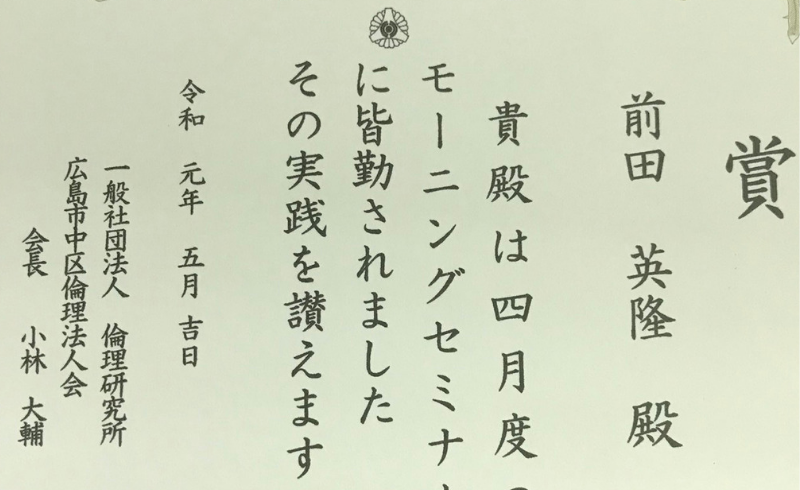 賞
前田 英隆 殿
貴殿は四月度
モーニングセミナ
に皆勤されました
その実践を讃えます
令和 元年 五月 吉日
一般社団法人 倫理研究所
広島市中区倫理法人会
会長 小林 大輔